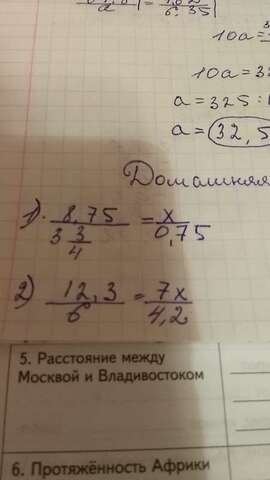 6. 35
10a=
10a=32
a=325:
a=32,5
Домашняя
1). 8,75/3 3/4 = x/0,75
2) 12,3/6 = 7x/4,2
5. Расстояние между
Москвой и Владивостоком
6. Протяжённость Африки